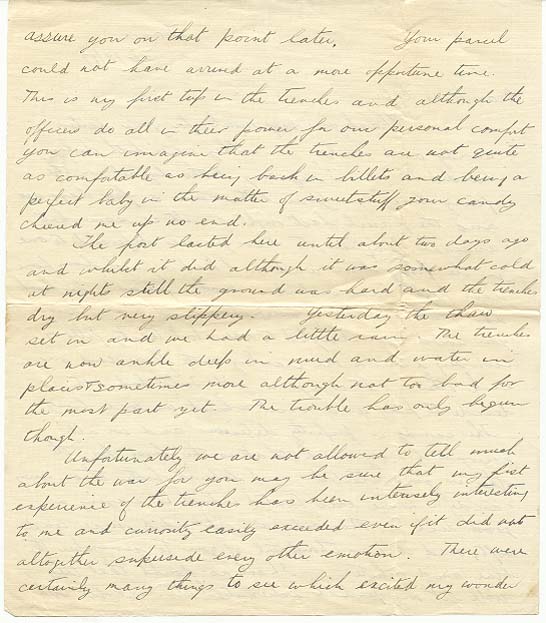 assure you on that point later. Your parcel
could not have arrived at a more opportune time.
This is my first trip in the trenches and although the
officers do all in their power for our personal comfort
you can imagine that the trenches are not quite
as comfortable as being back in billets and being a
perfect baby in the matter of sweetstuff your candy
cheered me up no end.
The frost lasted here until about two days ago
and whilst it did although it was somewhat cold
at nights still the ground was hard and the trenches
dry but very slippery. Yesterday the thaw
set in and we had a little rain. The trenches
are now ankle deep in mud and water in
places & sometimes more although not too bad for
the most part yet. The trouble has only begun
though.
Unfortunately we are not allowed to tell much
about the war for you may be sure that my first
experience of the trenches has been intensely interesting
to me and curiosity easily exceeded even if it did not
altogether supersede every other emotion. There were
certainly many things to see which excited my wonder